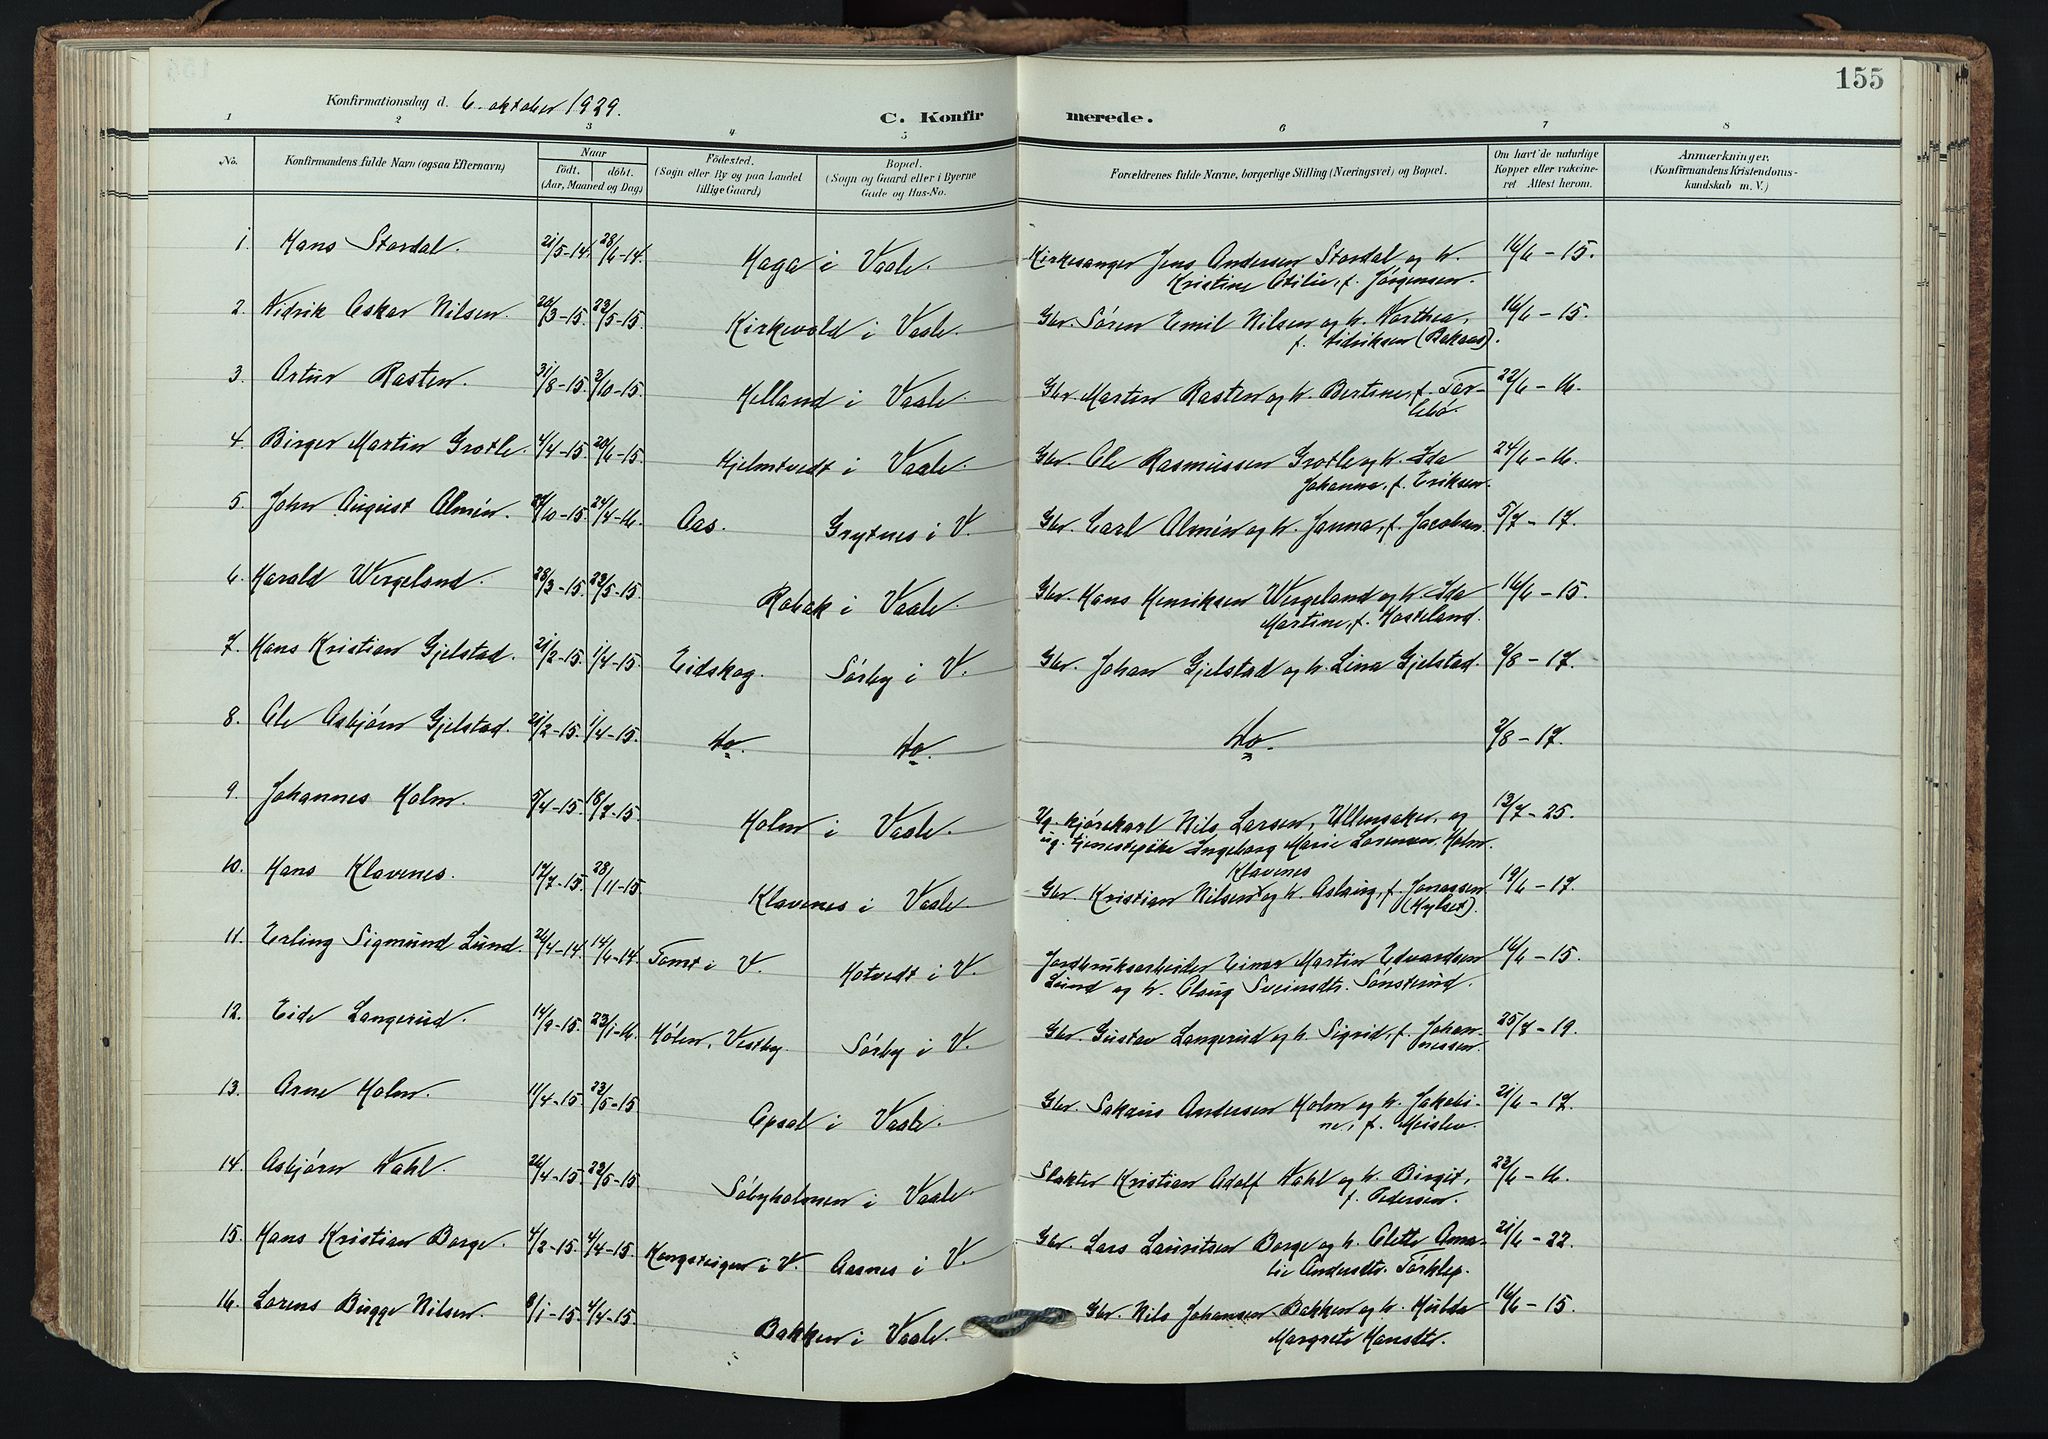 155
Konfirmationsdag d. 6. oktober 1929.
C. Konfirmerede.
1 2 3 4 5 6 7 8
No. Konfirmandens fulde Navn (ogsaa Efternavn) Naar født. døbt. (Aar, Maaned og Dag) Fødested. (Sogn eller By og paa Landet tillige Gaard) Bopæl. (Sogn og Gaard eller i Byerne Gade og Hus-No. Forældrenes fulde Navne, borgerlige Stilling (Næringsvei) og Bopæl. Om havt de naturlige Kopper eller vakcineret Attest herom. Anmærkninger. (Konfirmandens Kristendomskundskab m. V.)
1. Hans Stordal. 21/5-14. 28/6-14. Haga i Vaale. Kirkesanger Jens Andersen Stordal og h. 16/6-15.
Kristine Otilie, f. Jørgensen.
2. Didrik Oskar Nilsen. 20/3-15. 23/5-15. Kirkevold i Vaale. Gbr. Søren Emil Nilsen og h. Dorthea, 16/6-15.
f. Didriksen (Bakaas).
3. Artur Rasten. 31/8-15. 3/10-15. Helland i Vaale. Gbr. Martin Rasten og h. Bertine, f. Tor- 22/6-16.
4. Birger Martin Grotle. 4/4-15. 20/6-15. Hjelmtvedt i Vaale. Gbr. Ole Rasmussen Grotle og h. Ida 24/6-16.
Johanne, f. Eriksen.
5. John August Almén. 24/4-16. Aas. Grytnes i V. Gbr. Carl Almén og h. Janna, f. Jacobsen. 5/7-17.
6. Harald Wergeland. 28/3-15. 23/5-15. Robak i Vaale. Gbr. Hans Henriksen Wergeland og h. Ida 16/6-15.
Martine, f. Hasteland.
7. Hans Kristian Gjelstad. 21/2-15. 1/4-15. Eidskog. Sørby i V. Gbr. Johan Gjelstad og h. Lina Gjelstad. 2/8-17.
8. Ole Asbjørn Gjelstad. 21/2-15. 1/4-15. Do. Do. Do. 2/8-17.
9. Johannes Holm. 5/4-15. 18/7-15. Holm i Vaale. Ug. kjørekarl Nils Larsen, Ullensaker, og 13/7-25.
ug. tjenestepike Ingeborg Marie Lorensen, Holm.
10. Hans Klavenes. 17/7-15. 28/11-15. Klavenes i Vaale. Klavenes
Gbr. Kristian Nilsen og h. Aslaug, f. Jonassen 19/6-17.
11. Erling Sigmund Lund. 26/4-14. 14/6-14. Tomt i V. Hotvedt i V. Jordbruksarbeider Einar Martin Edvardsen 16/6-15.
Lund og h. Olaug Sveinsdtr. Sønstrud.
12. Eide Langerud. 14/9-15. 23/1-16. Hølen, Vestby. Sørby i V. Gbr. Gustav Langerud og h. Sigrid, f. Johan- 25/7-19.
nessen.
13. Arne Holm. 11/4-15. 23/5-15 Opsal i Vaale. Gbr. Sakaus Andersen Holm og h. Jakobi- 21/6-17.
ne, f. Meislev.
14. Asbjørn Dahl. 26/4-15. 23/5-15. Søbyholmen i Vaale. Slakter Kristian Adolf Dahl og h. Birgit, 22/6-16.
f. Pedersen.
15. Hans Kristian Borge. 4/2-15. 4/4-15. Kongsteigen i V. Aasnes i V. Gbr. Lars Lauritsen Borge og h. Olette Ama- 21/6-22.
lie Andersdtr. Torklep.
16. Lorens Bugge Nilsen. 8/1-15. 4/4-15. Bakken i Vaale. Gbr. Nils Johansen Bakken og h. Hulda 16/6-15.
Margrete Hansdtr.